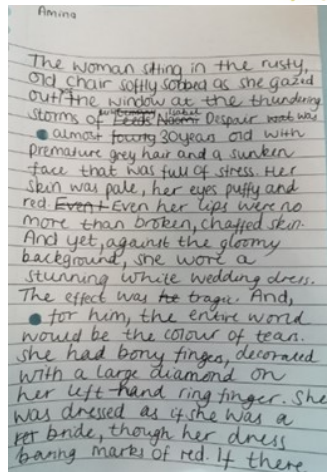 Amina
The woman sitting in the rusty,
old chair softly sobbed as she gazed
out the window at the thundering
storms of Despair was
almost 30 year old with
premature grey hair and a sunken
face that was full of stress. Her
skin was pale, her eyes puffy and
red. Even her lips were no
more than broken, chaffed skin.
And yet, against the gloomy
background, she wore a
stunning white wedding dress.
The effect was tragic. And,
for him, the entire world
would be the colour of tean.
She had bony finges, decorated
with a large diamond on
her left-hand ring finger. She
was dressed as if she was a
bride, though her dress
baring marks of red. If there